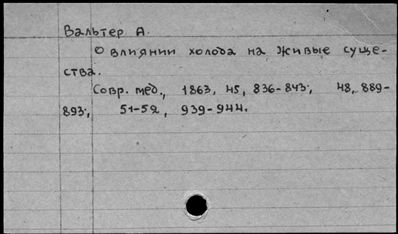 Вальтер А.
О влиянии холода на живые суще-
ства.
Совр. мед., 1863, 45, 836-843; 48, 889-
893; 51-52, 939-944.